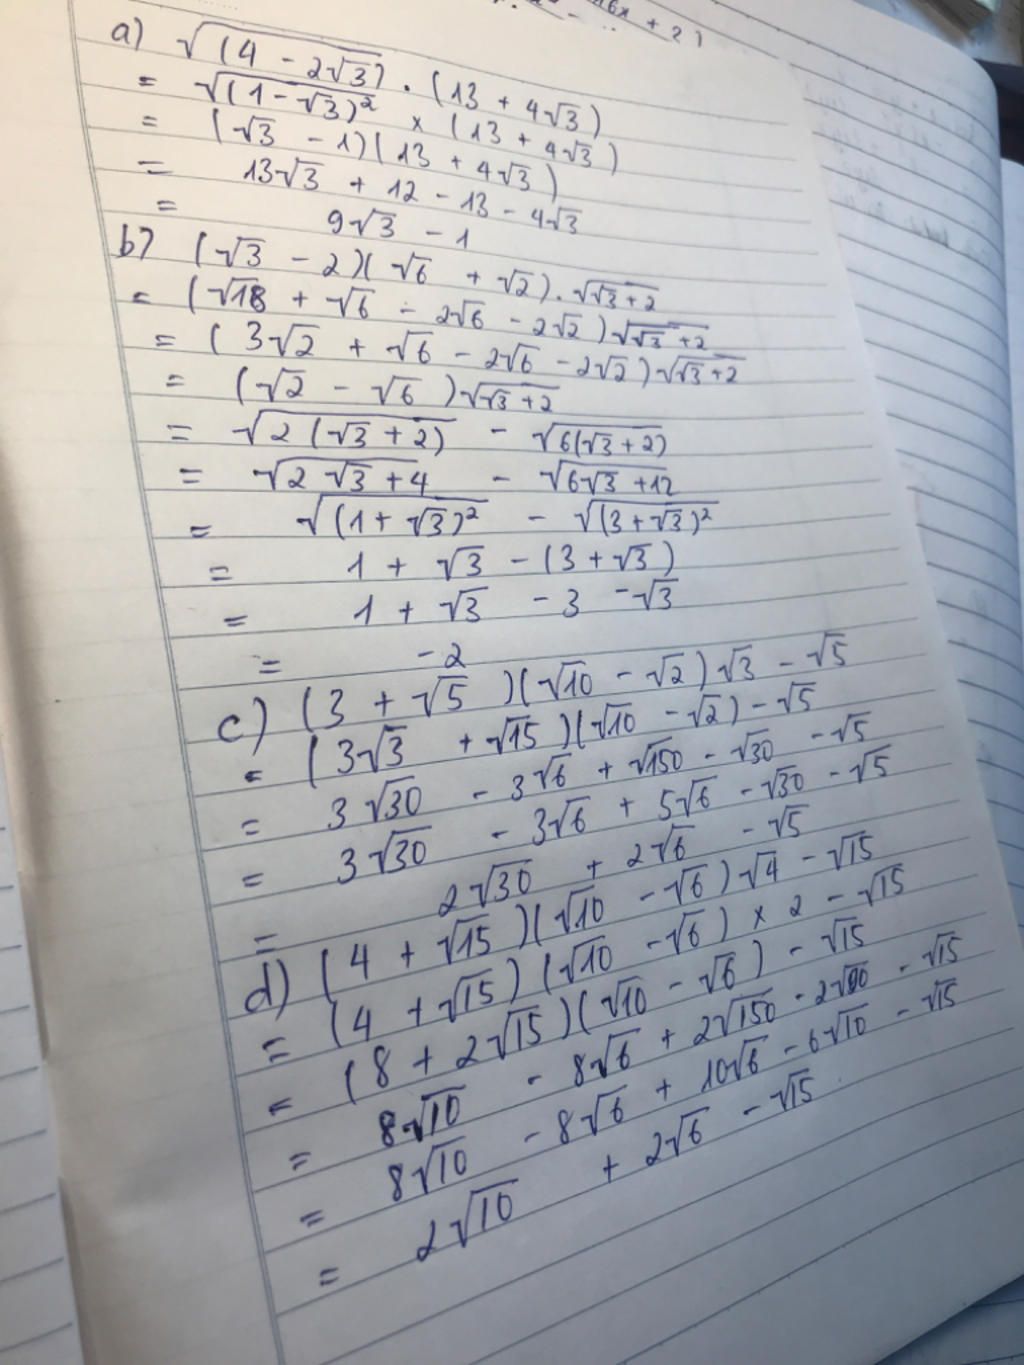 16x + 2)
a) √(4 - 2√3) . (13 + 4√3)
= √(1-√3)² × (13 + 4√3)
= (√3 - 1)(13 + 4√3)
= 13√3 + 12 - 13 - 4√3
= 9√3 - 1
b) (√3 - 2)(√6 + √2) . √(√3+2)
= (√18 + √6 - 2√6 - 2√2)√(√3+2)
= (3√2 + √6 - 2√6 - 2√2)√(√3+2)
= (√2 - √6)√(√3+2)
= √(2(√3+2)) - √(6(√3+2))
= √(2√3+4) - √(6√3+12)
= √(1+√3)² - √(3+√3)²
= 1 + √3 - (3+√3)
= 1 + √3 - 3 - √3
= -2
c) (3 + √5)(√10 - √2)√3 - √5
= (3√3 + √15)(√10 - √2) - √5
= 3√30 - 3√6 + √150 - √30 - √5
= 3√30 - 3√6 + 5√6 - √30 - √5
= 2√30 + 2√6 - √5
d) (4 + √15)(√10 - √6)√4 - √15
= (4 + √15)(√10 - √6) × 2 - √15
= (8 + 2√15)(√10 - √6) - √15
= 8√10 - 8√6 + 2√150 - 2√90 - √15
= 8√10 - 8√6 + 10√6 - 6√10 - √15
= 2√10 + 2√6 - √15